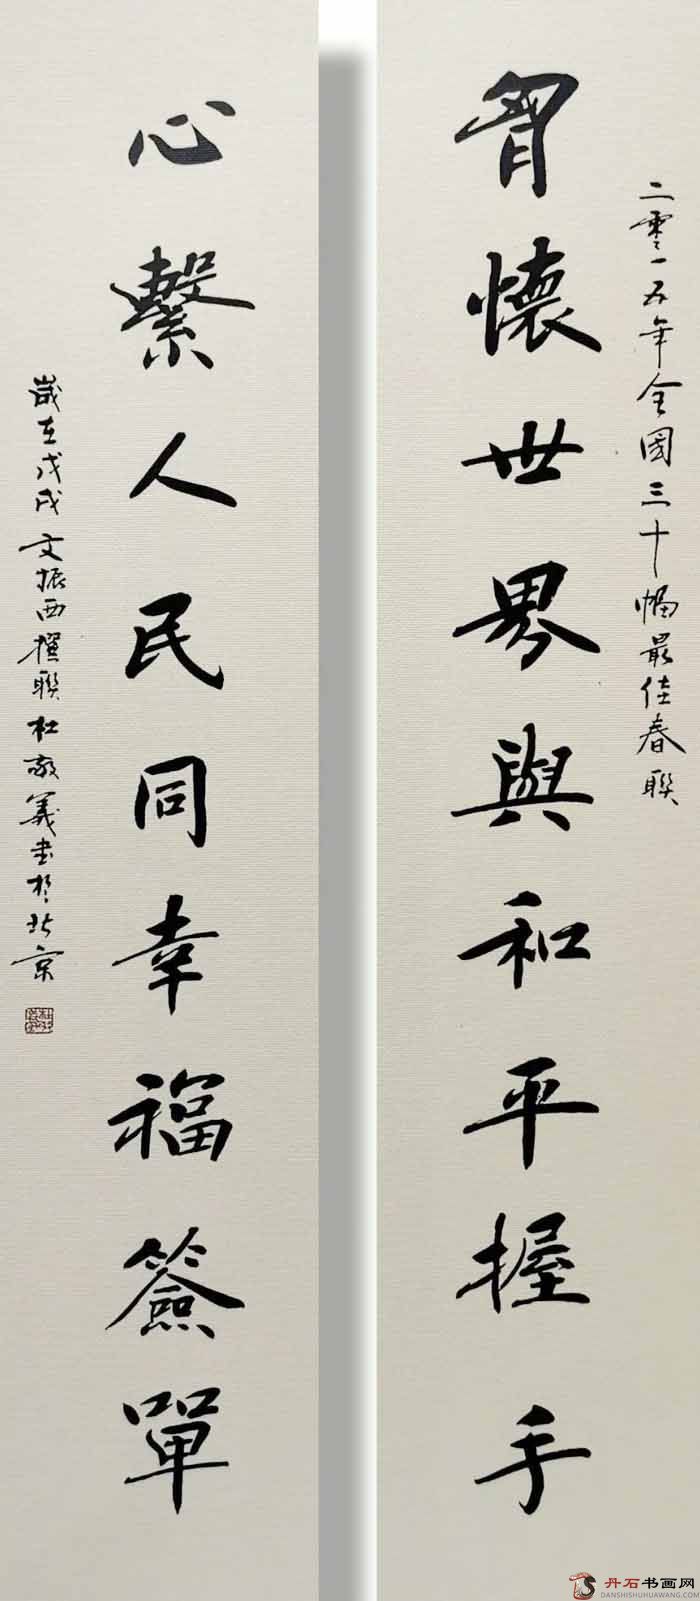 二零一五年全国三十幅最佳春联
胷懷世界與和平握手
心繫人民同幸福簽單
歲在戊戌文振西撰联杜敬義书於北京
丹石书画网
DANSHISHUHUAWANG.COM